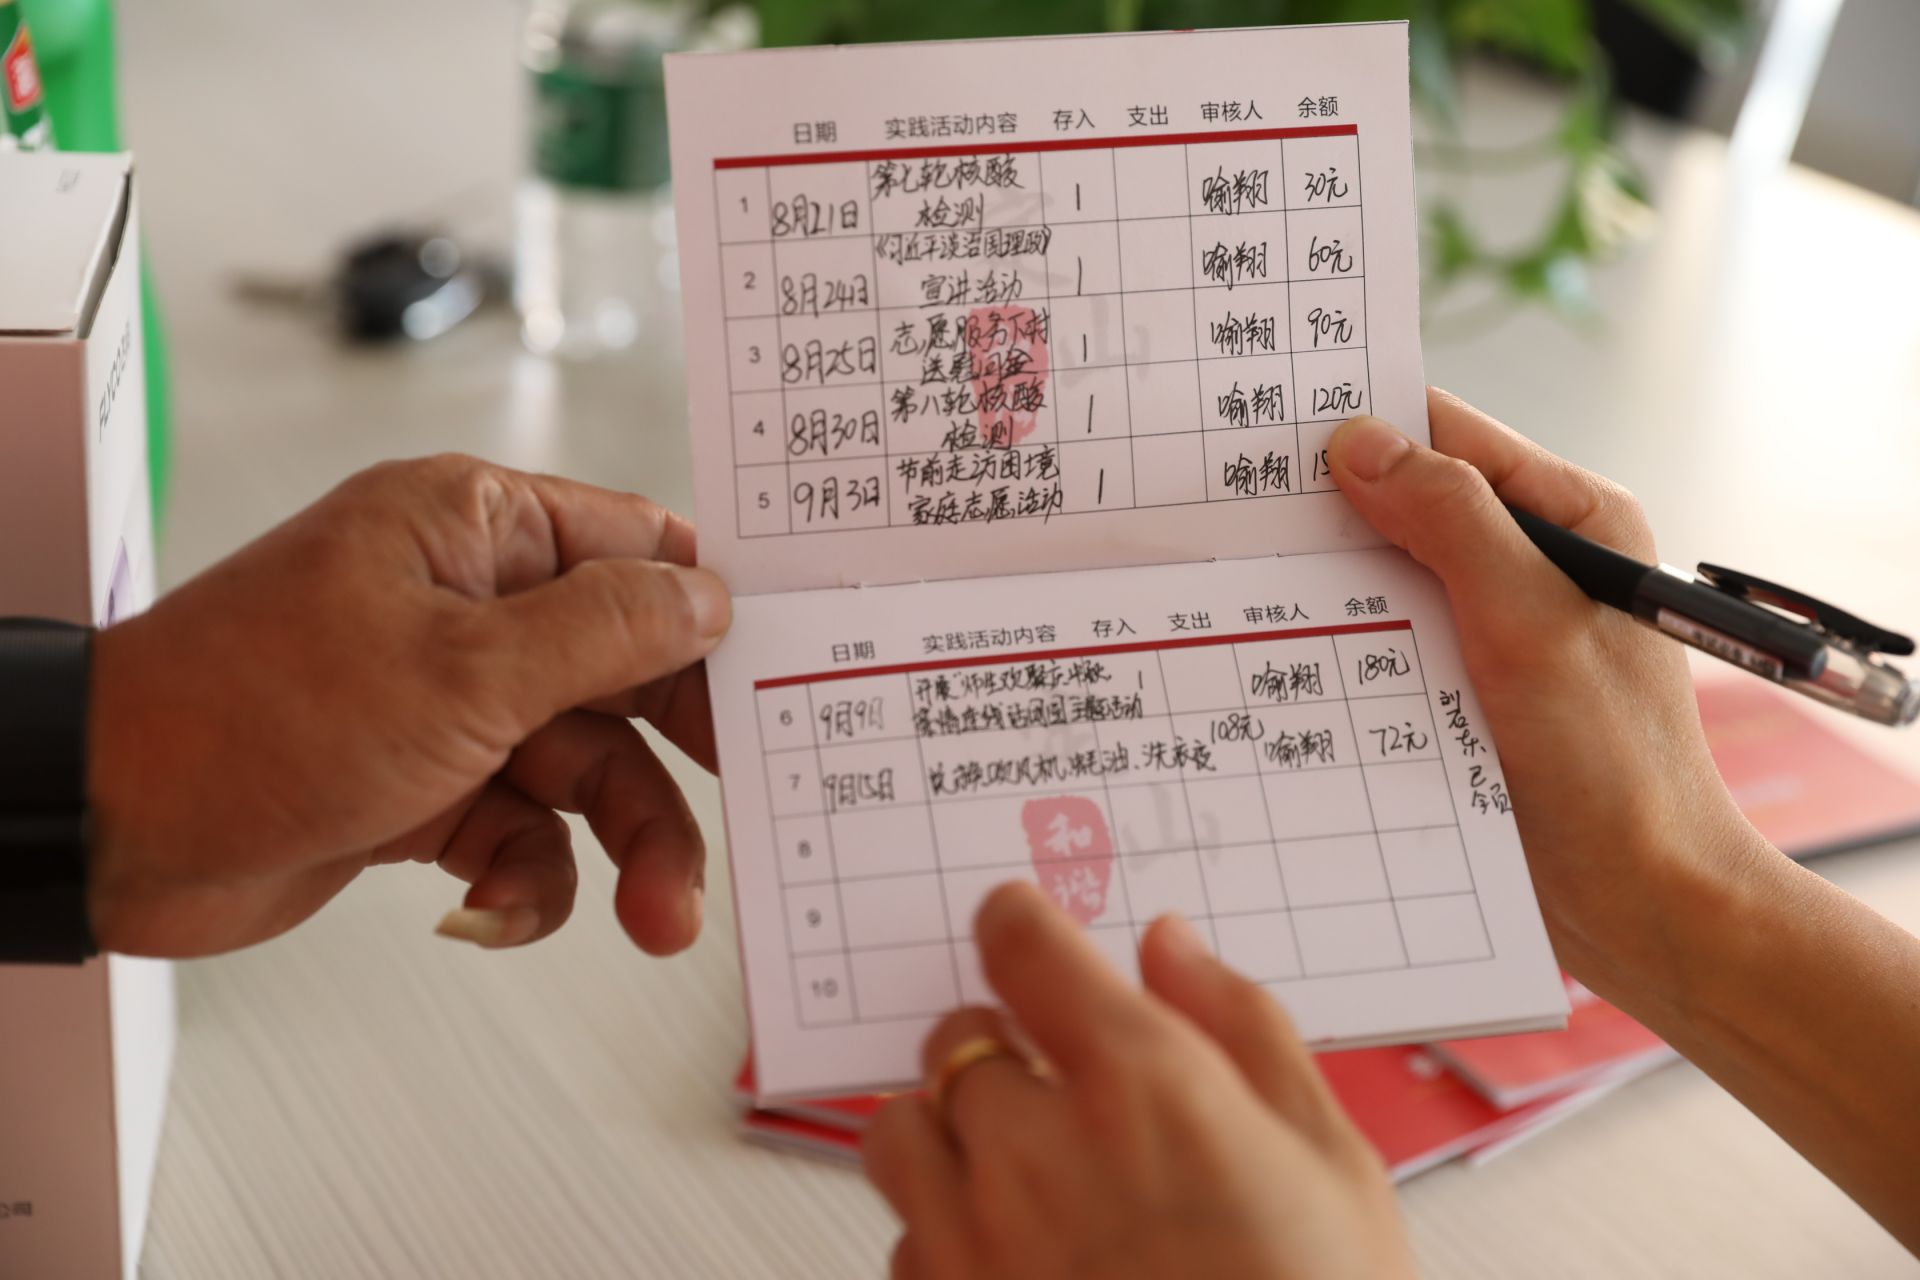 日期 实践活动内容 存入 支出 审核人 余额
1 8月21日 第七轮核酸 1 喻翔 30元
检测
2 8月24日 《习近平谈治国理政》 1 喻翔 60元
宣讲活动
3 8月25日 志愿服务下村 1 喻翔 90元
送慰问金
4 8月30日 第八轮核酸 1 喻翔 120元
检测
5 9月3日 节前走访困境 1 喻翔 15
家庭志愿活动
日期 实践活动内容 存入 支出 审核人 余额
6 9月9日 开展“师生欢聚庆中秋 1 喻翔 180元
家情连线话团圆主题活动
7 9月15日 兑换吹风机、蚝油、洗衣液 108元 喻翔 72元
8
9
10
和谐
山
山
已领
FLYCO